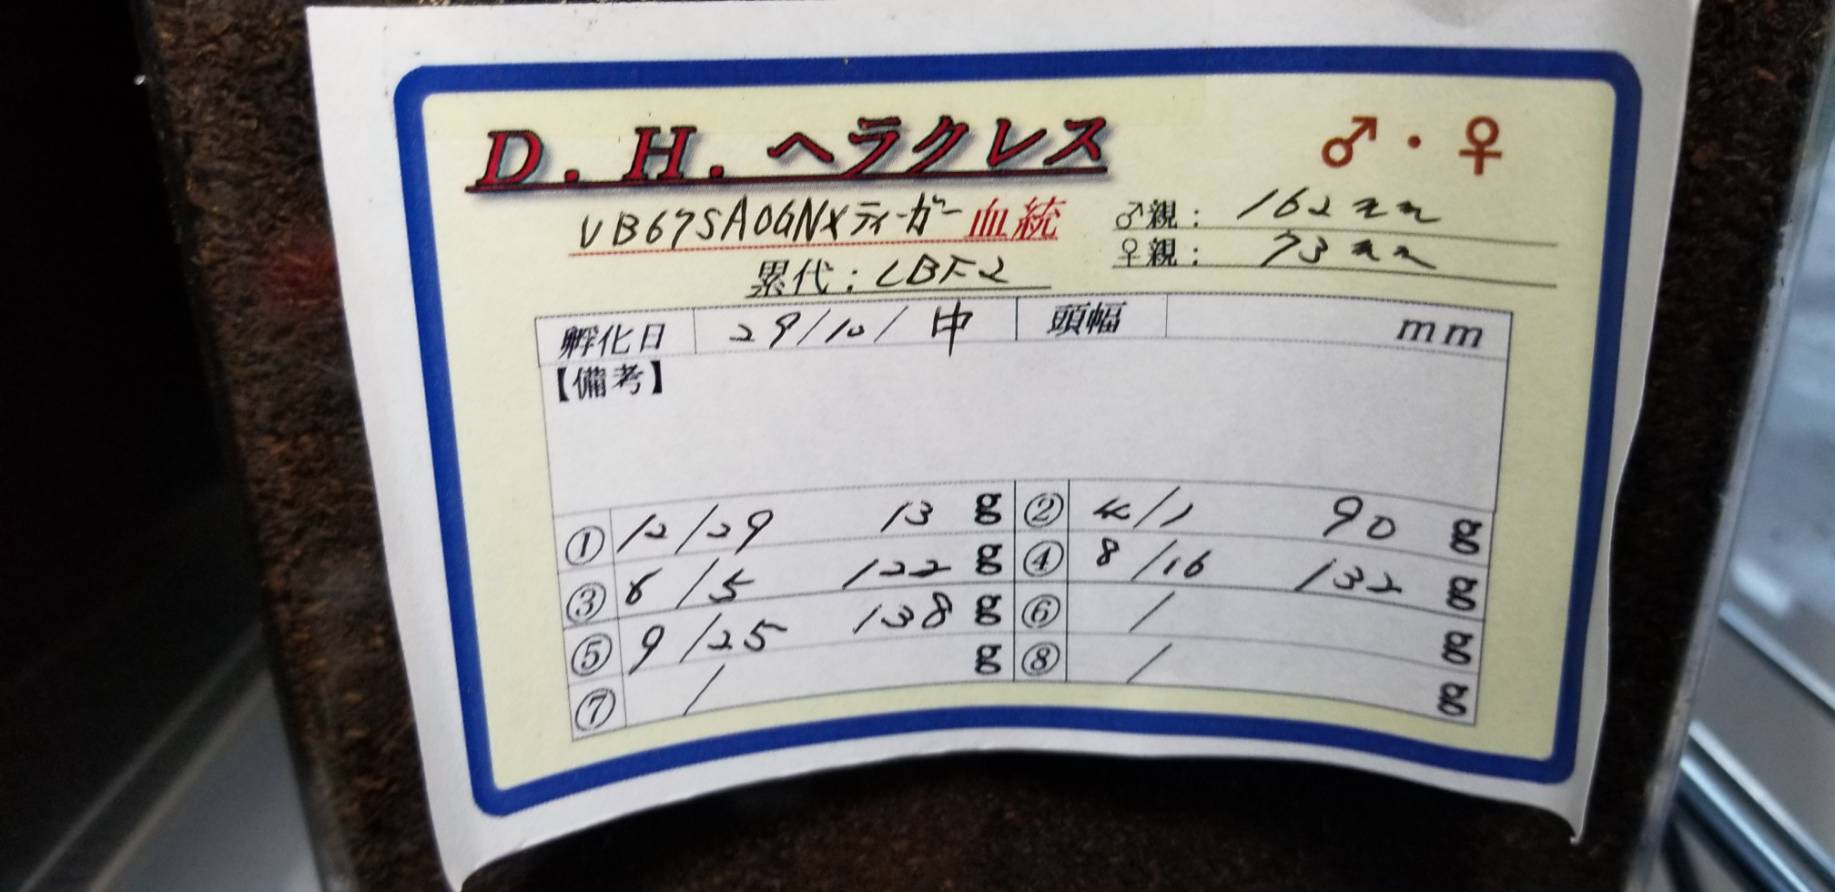 D.H.ヘラクレス ♂・♀
VB67SA06NXティーガー血統 ♂親：162mm
♀親：73mm
累代：CBF2
孵化日 29/10/中 頭幅 mm
【備考】
① 12/29 13 g ② 4/1 90 g
③ 6/5 122 g ④ 8/16 132 g
⑤ 9/25 138 g ⑥ / g
⑦ / g ⑧ / g